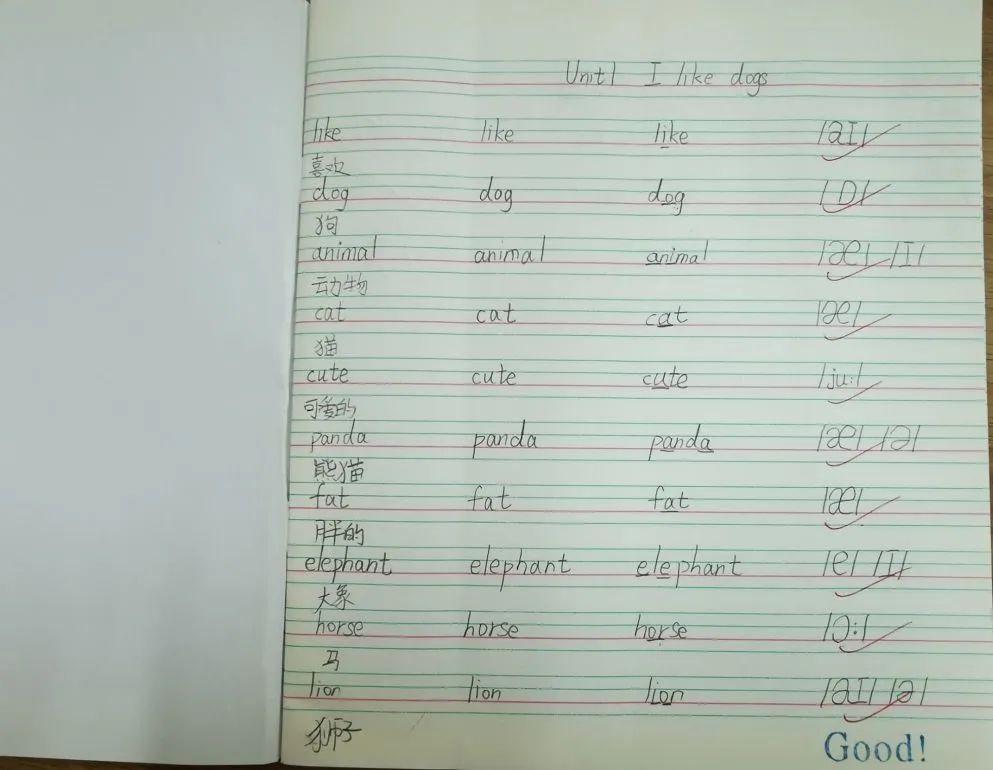 Unit1 I like dogs
like like like /aɪ/
喜欢
dog dog dog /ɒ/
狗
animal animal animal /æ/ /ɪ/
动物
cat cat cat /æ/
猫
cute cute cute /juː/
可爱的
panda panda panda /æ/ /ə/
熊猫
fat fat fat /æ/
胖的
elephant elephant elephant /e/ /ɪ/
大象
horse horse horse /ɔː/
马
lion lion lion /aɪ/ /ə/
狮子
Good!